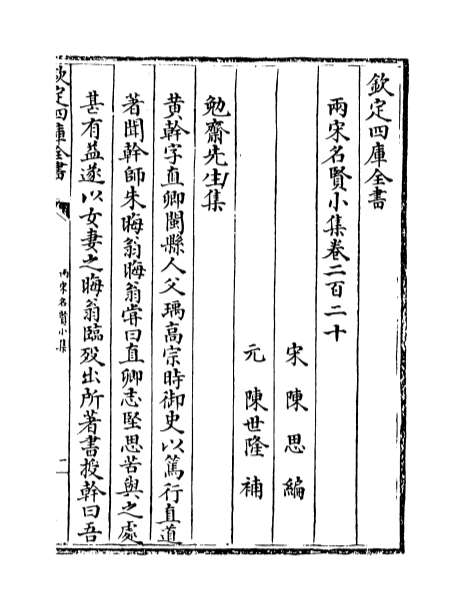 欽定四庫全書
兩宋名賢小集卷二百二十
宋 陳思 編
元 陳世隆 補
勉齋先生集
黄幹字直卿閩縣人父瑀髙宗時御史以篤行直道
著聞幹師朱晦翁晦翁嘗曰直卿志堅思苦與之處
甚有益遂以女妻之晦翁臨殁出所著書授幹曰吾
欽定四庫全書
兩宋名賢小集